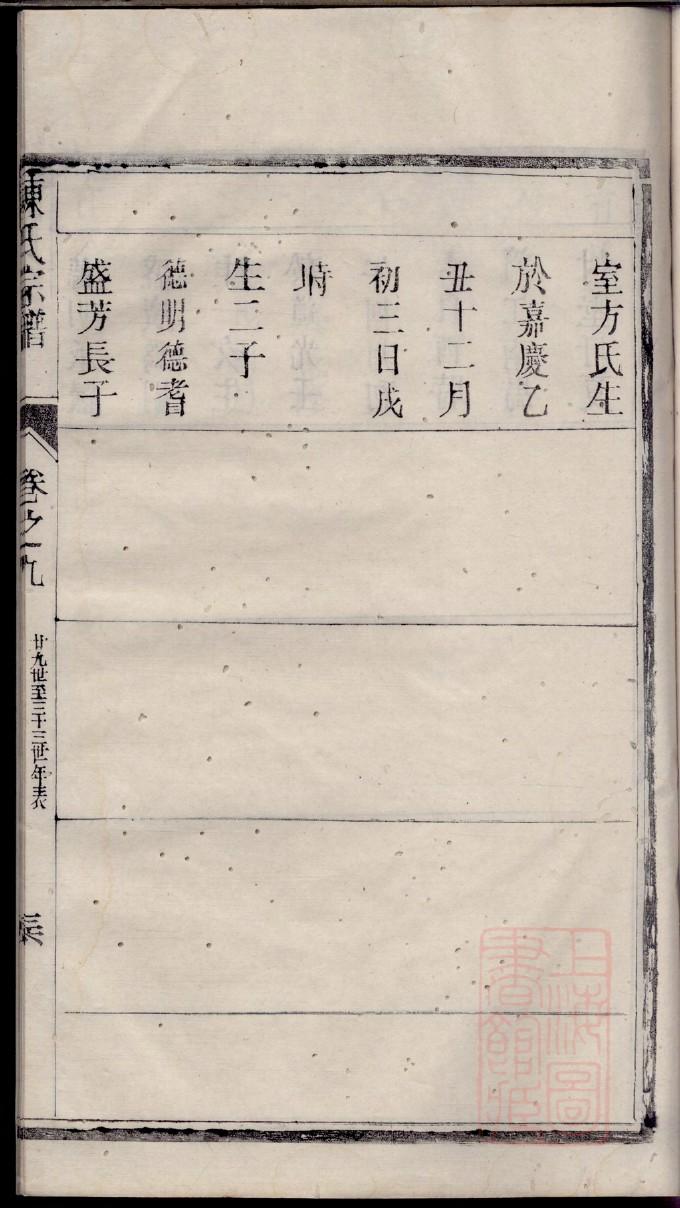 室方氏生
於嘉慶乙
丑十二月
初三日戌
時
生二子
德明德耆
盛芳長子
陳氏宗譜
卷之九
廿九世至三十三世年表
上海圖書館藏